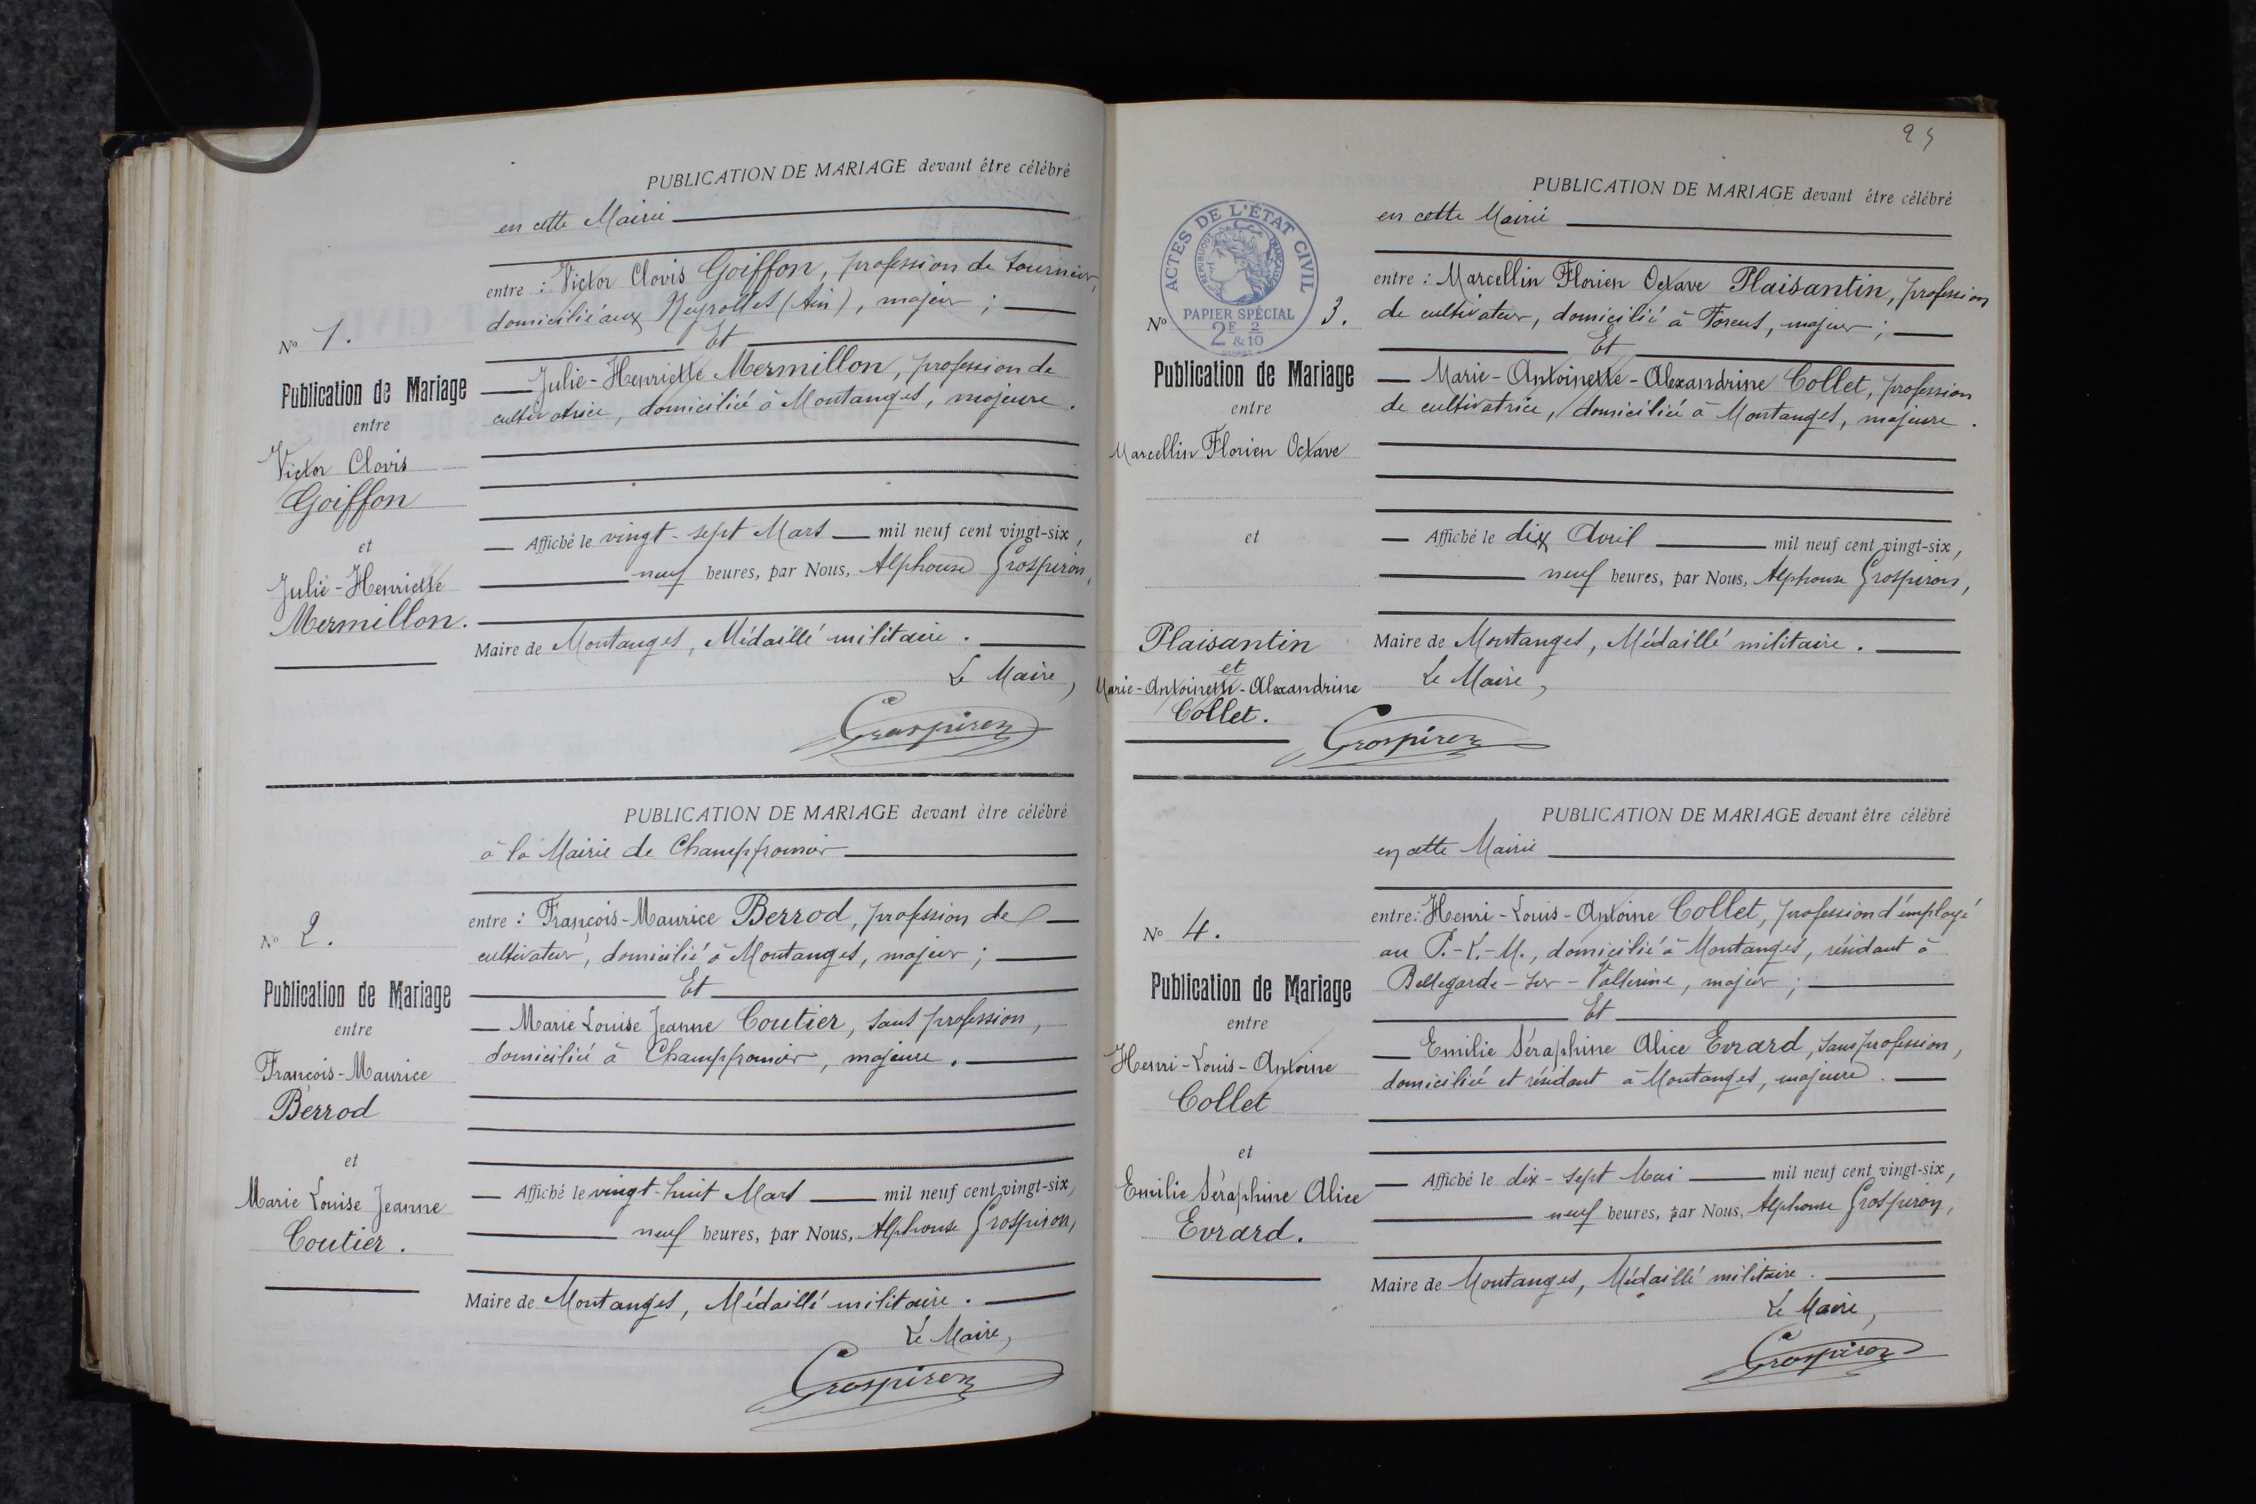 PUBLICATION DE MARIAGE devant être célébré
en cette Mairie
entre : Victor Clovis Goiffon, profession de tourneur,
domicilié aux Neyrolles (Ain), majeur ;
Et
Julie-Henriette Mermillon, profession de
cultivatrice, domiciliée à Montanges, majeure.
Affiché le vingt-sept Mars mil neuf cent vingt-six,
neuf heures, par Nous, Alphonse Grospiron,
Maire de Montanges, Médaillé militaire.
Le Maire,
Grospiron
No 1.
Publication de Mariage
entre
Victor Clovis
Goiffon
et
Julie-Henriette
Mermillon.
PUBLICATION DE MARIAGE devant être célébré
à la Mairie de Champfromier
entre : François-Maurice Berrod, profession de
cultivateur, domicilié à Montanges, majeur ;
Et
Marie Louise Jeanne Coutier, sans profession,
domiciliée à Champfromier, majeure.
Affiché le vingt-huit Mars mil neuf cent vingt-six,
neuf heures, par Nous, Alphonse Grospiron,
Maire de Montanges, Médaillé militaire.
Le Maire,
Grospiron
No 2.
Publication de Mariage
entre
François-Maurice
Berrod
et
Marie Louise Jeanne
Coutier.
ACTES DE L'ÉTAT CIVIL
RÉPUBLIQUE FRANÇAISE
PAPIER SPÉCIAL
2F 2
& 10
PUBLICATION DE MARIAGE devant être célébré
en cette Mairie
entre : Marcellin Florien Octave Plaisantin, profession
de cultivateur, domicilié à Forens, majeur ;
Et
Marie-Antoinette-Alexandrine Collet, profession
de cultivatrice, domiciliée à Montanges, majeure.
Affiché le dix Avril mil neuf cent vingt-six,
neuf heures, par Nous, Alphonse Grospiron,
Maire de Montanges, Médaillé militaire.
Le Maire,
Grospiron
No 3.
Publication de Mariage
entre
Marcellin Florien Octave
et
Plaisantin
et
Marie-Antoinette-Alexandrine
Collet.
PUBLICATION DE MARIAGE devant être célébré
en cette Mairie
entre : Henri-Louis-Antoine Collet, profession d'employé
au P.-L.-M., domicilié à Montanges, résidant à
Bellegarde-sur-Valserine, majeur ;
Et
Emilie Séraphine Alice Evrard, sans profession,
domiciliée et résidant à Montanges, majeure.
Affiché le dix-sept Mai mil neuf cent vingt-six,
neuf heures, par Nous, Alphonse Grospiron,
Maire de Montanges, Médaillé militaire.
Le Maire,
Grospiron
No 4.
Publication de Mariage
entre
Henri-Louis-Antoine
Collet
et
Emilie Séraphine Alice
Evrard.